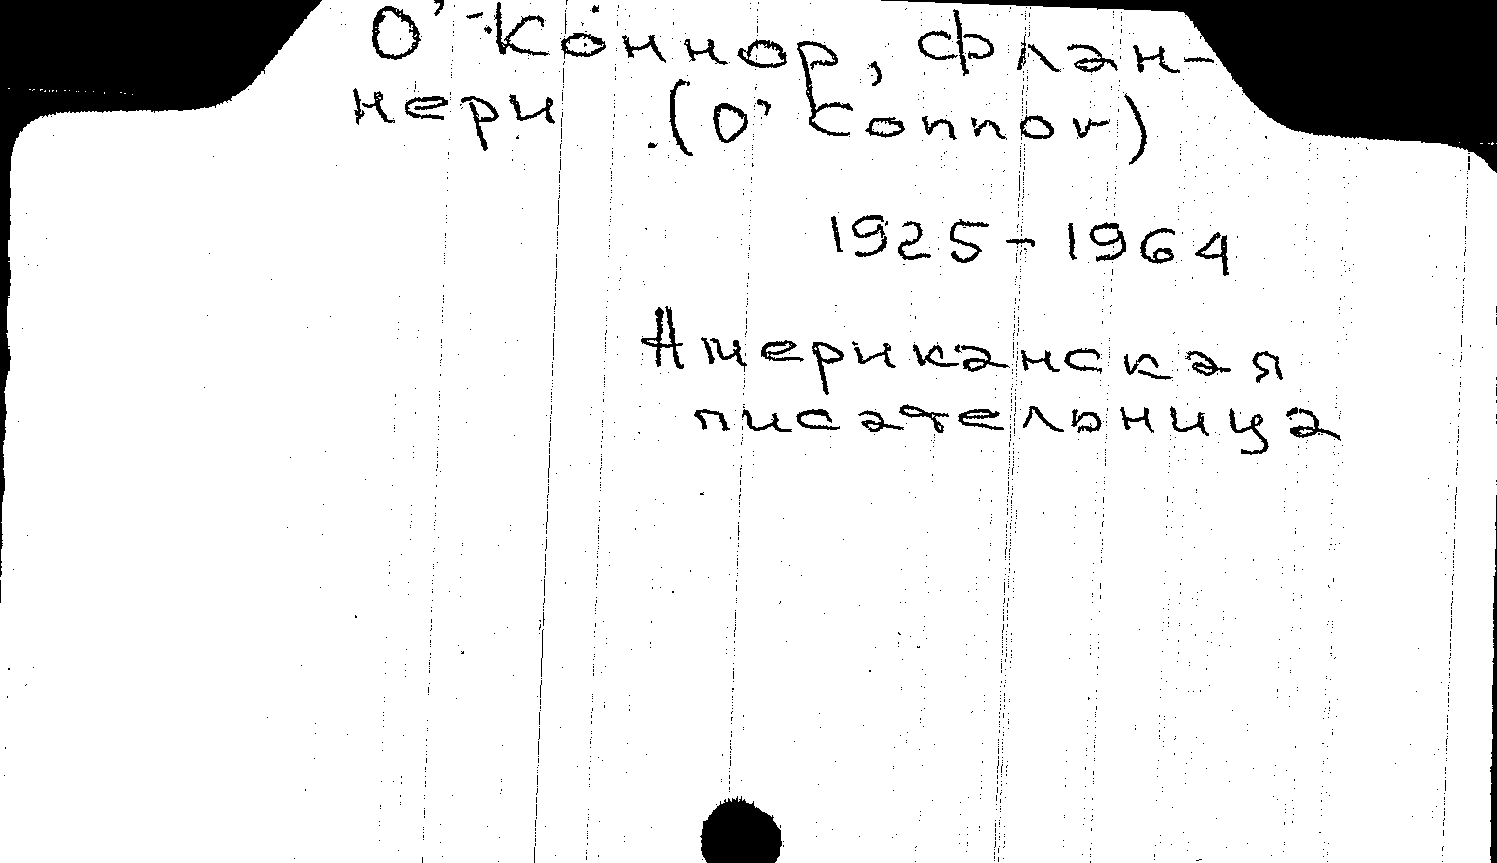 О'-Коннор, Флан-
нери (O'Connor)
1925-1964
Американская
писательница